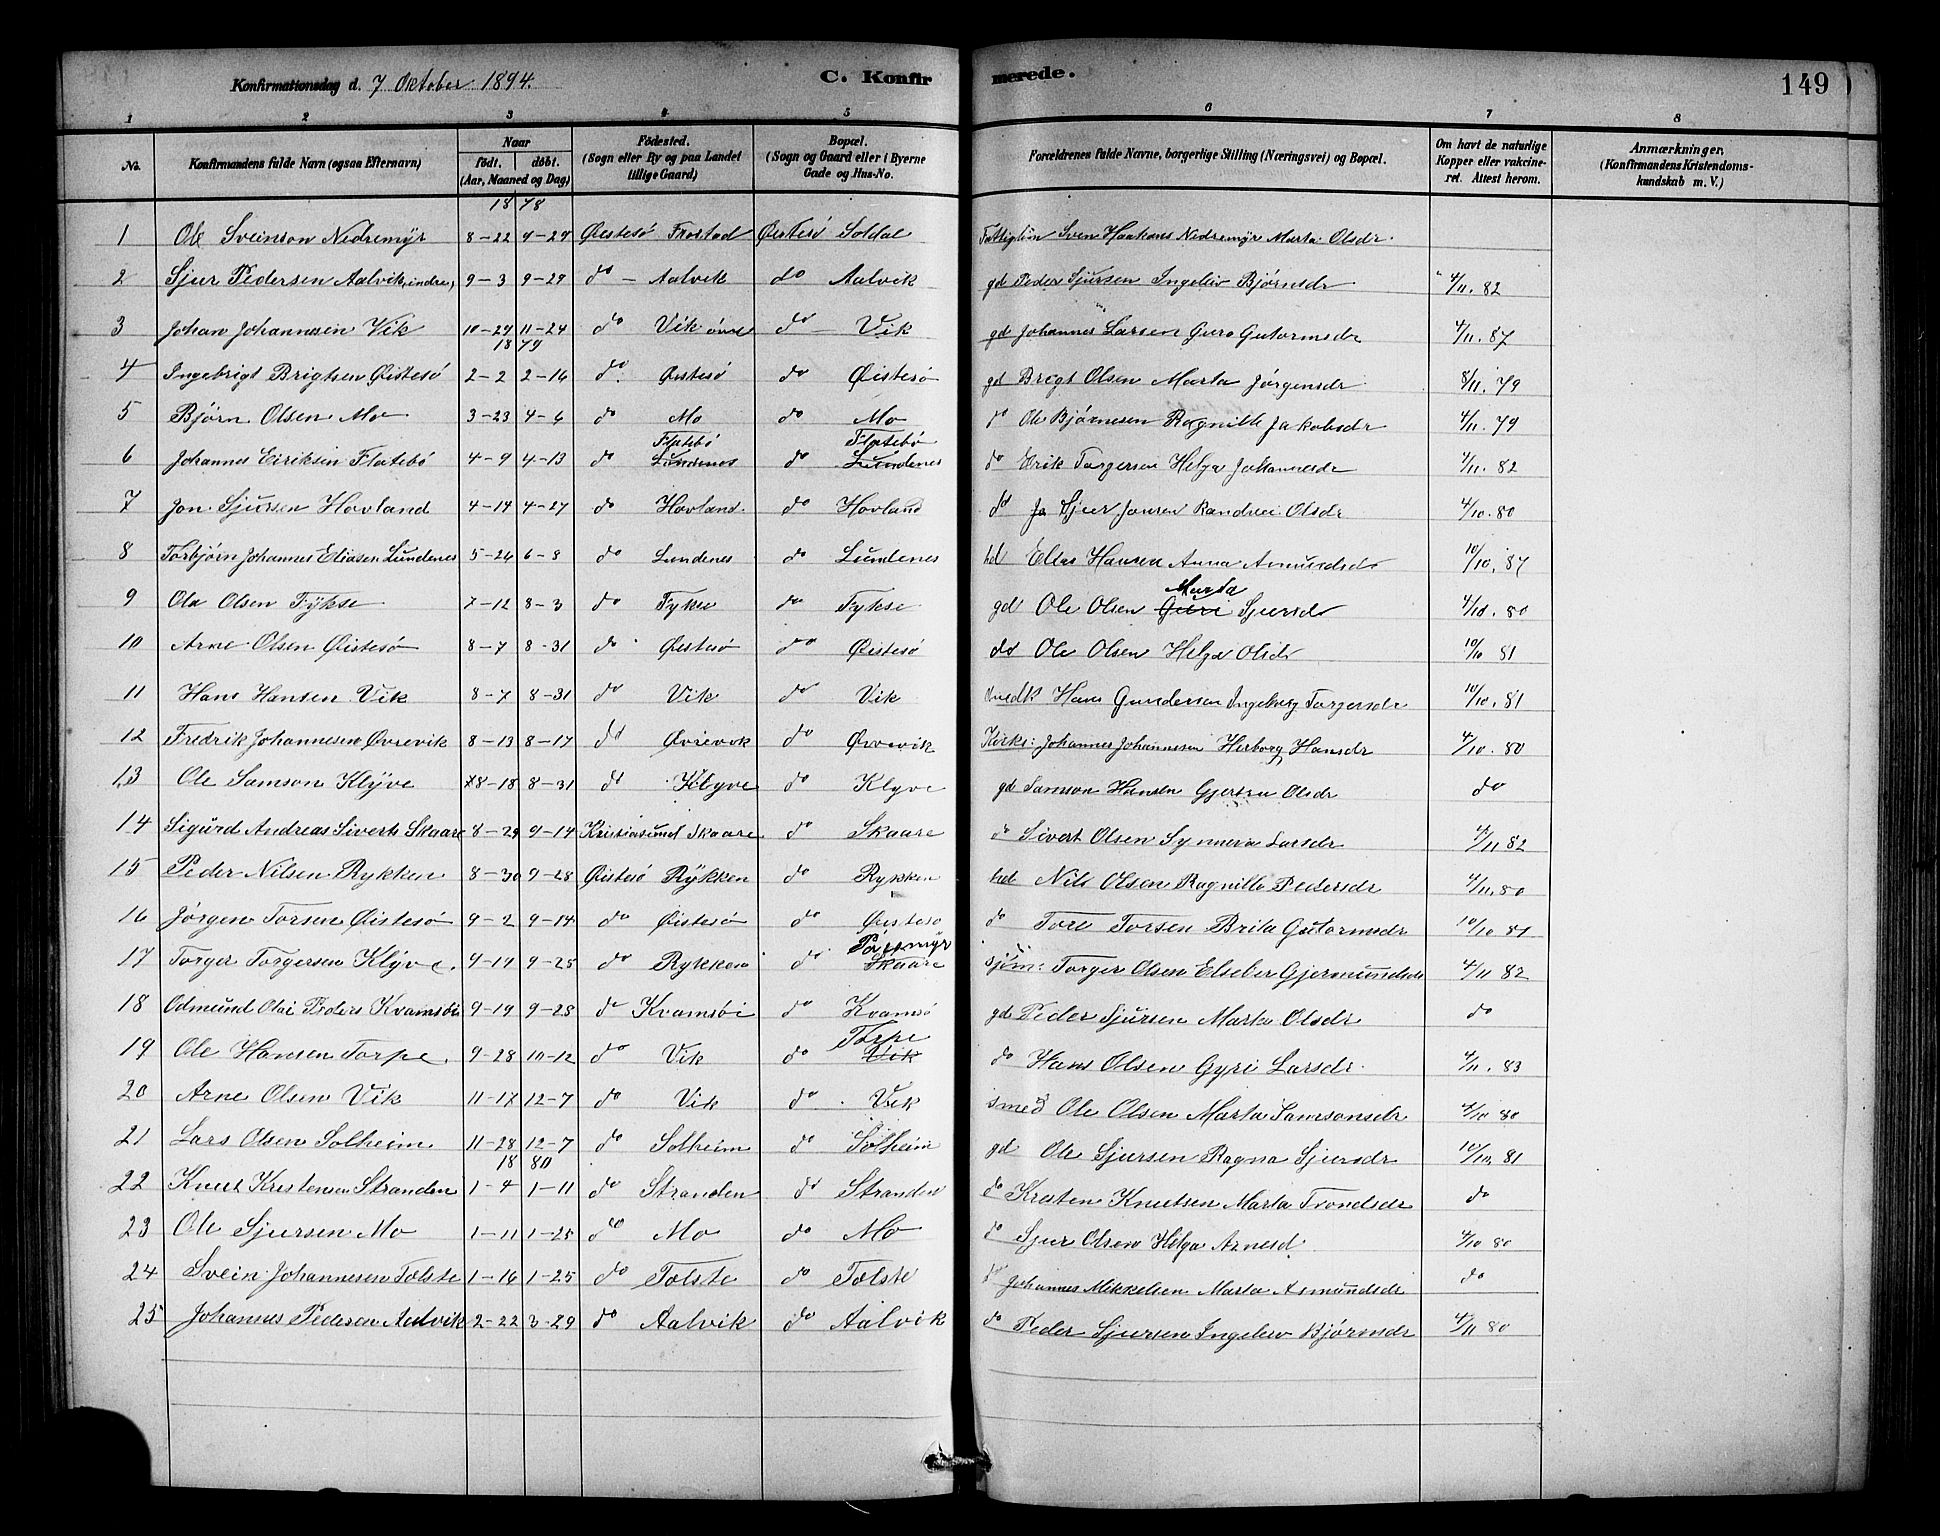 Konfirmationsdag d. 7 Oktober 1894.
C. Konfirmerede.
149
1 2 3 4 5 6 7 8
No.
Konfirmandens fulde Navn (ogsaa Efternavn)
Naar
födt. döbt.
(Aar, Maaned og Dag)
Födested.
(Sogn eller By og paa Landet
tillige Gaard)
Bopæl.
(Sogn og Gaard eller i Byerne
Gade og Hus-No.
Forældrenes fulde Navne, borgerlige Stilling (Næringsvei) og Bopæl.
Om havt de naturlige
Kopper eller vakcine-
ret. Attest herom.
Anmærkninger,
(Konfirmandens Kristendoms-
kundskab m. V.)
18 78
1 Ole Sveinson Nedremyr 8-22 9-29 Øistesö Frostad Øistesö Soldal Sven Haakons Nedremyr Marta Olsdr.
2 Sjur Pedersen Aalvik, indre, 9-3 9-29 do - Aalvik do Aalvik gd Peder Sjursen Ingeliv Bjørnsdr 4/11. 82
3 Johan Johannesen Vik 10-29 11-24 do Vik övre do - Vik gd Johannes Larsen Guro Gutormsdr 4/11. 87
18 79
4 Ingebrigt Brigtsen Øistesö 2-2 2-16 do Øistesö do Øistesö gd Brigt Olsen Marta Jörgensdr 8/11. 79
5 Björn Olsen Mo 3-23 4-6 do Mo do Mo do Ole Bjørnesen Ragnille Jakobsdr 4/11. 79
6 Johannes Eiriksen Flatebö 4-9 4-13 do Flatebö Lundenes do Flatebö Lundenes do Erik Torgersen Helga Johannesdr 4/11. 82
7 Jon Sjursen Hovland 4-14 4-27 do Hovland do Hovland do Sjur Jonsen Randvei Olsdr 4/10. 80
8 Torbjörn Johannes Eliasen Lundenes 5-26 6-8 do Lundenes do Lundenes hd Elias Hansen Anna Amundsdr 10/10. 87
9 Ola Olsen Fykse 7-12 8-3 do Fykse do Fykse gd Ole Olsen Guri Marta Sjursdr 4/10. 80
10 Arne Olsen Øistesö 8-7 8-31 do Øistesö do Øistesö do Ole Olsen Helga Olsdr 10/10 81
11 Hans Hansen Vik 8-7 8-31 do Vik do Vik Hans Gundersen Ingeborg Torgersdr 10/10. 81
12 Fredrik Johannesen Øvrevik 8-13 8-17 do Øvrevik do Øvrevik Kirks: Johannes Johannesen Herborg Hansdr 4/10. 80
13 Ole Samson Klyve 8-18 8-31 do Klyve do Klyve gd Samson Hansen Gjertru Olsdr do
14 Sigurd Andreas Siverts Skaare 8-29 9-14 Kristiasund Skaare do Skaare do Sivert Olsen Synneva Larsdr 4/11 82
15 Peder Nilsen Rykken 8-30 9-28 Øistesö Rykken do Rykken hd Nils Olsen Ragnille Pedersdr 4/11. 80
16 Jörgen Torsen Øistesö 9-2 9-14 do Øistesö do Øistesö do Tore Torsen Brita Gutormsdr 10/10 81
17 Torger Torgersen Klyve. 9-19 9-25 do Rykken do Skaare sjöm: Torger Olsen Elseber Gjermundsdr 4/11 82
18 Odmund Olai Peders Kvamsöi 9-19 9-28 do Kvamsöi do Kvamsö gd Peder Sjursen Marta Olsdr do
19 Ole Hansen Torpe. 9-28 10-12 do Vik do Torpe Vik do Hans Olsen Gyri Larsdr. 4/11. 83
20 Arne Olsen Vik 11-17 12-7 do Vik do Vik smed Ole Olsen Marta Samsonsdr 4/10 80
21 Lars Olsen Solheim 11-28 12-7 do Solheim do Solheim gd Ole Sjursen Ragna Sjursdr 10/10. 81
18 80
22 Knut Kristensen Stranden 1-4 1-11 do Stranden do Stranden do Kristen Knutsen Marta Trondsdr do
23 Ole Sjursen Mo 1-11 1-25 do Mo do Mo do Sjur Olsen Helga Arnesd 4/10 80
24 Svein Johannesen Tolste 1-16 1-25 do Tolste do Tolste do Johannes Mikkelsen Marta Asmundsdr do
25 Johannes Pedersen Aalvik 2-22 3-29 do Aalvik do Aalvik do Peder Sjursen Ingeliv Bjørnsdr 4/11 80